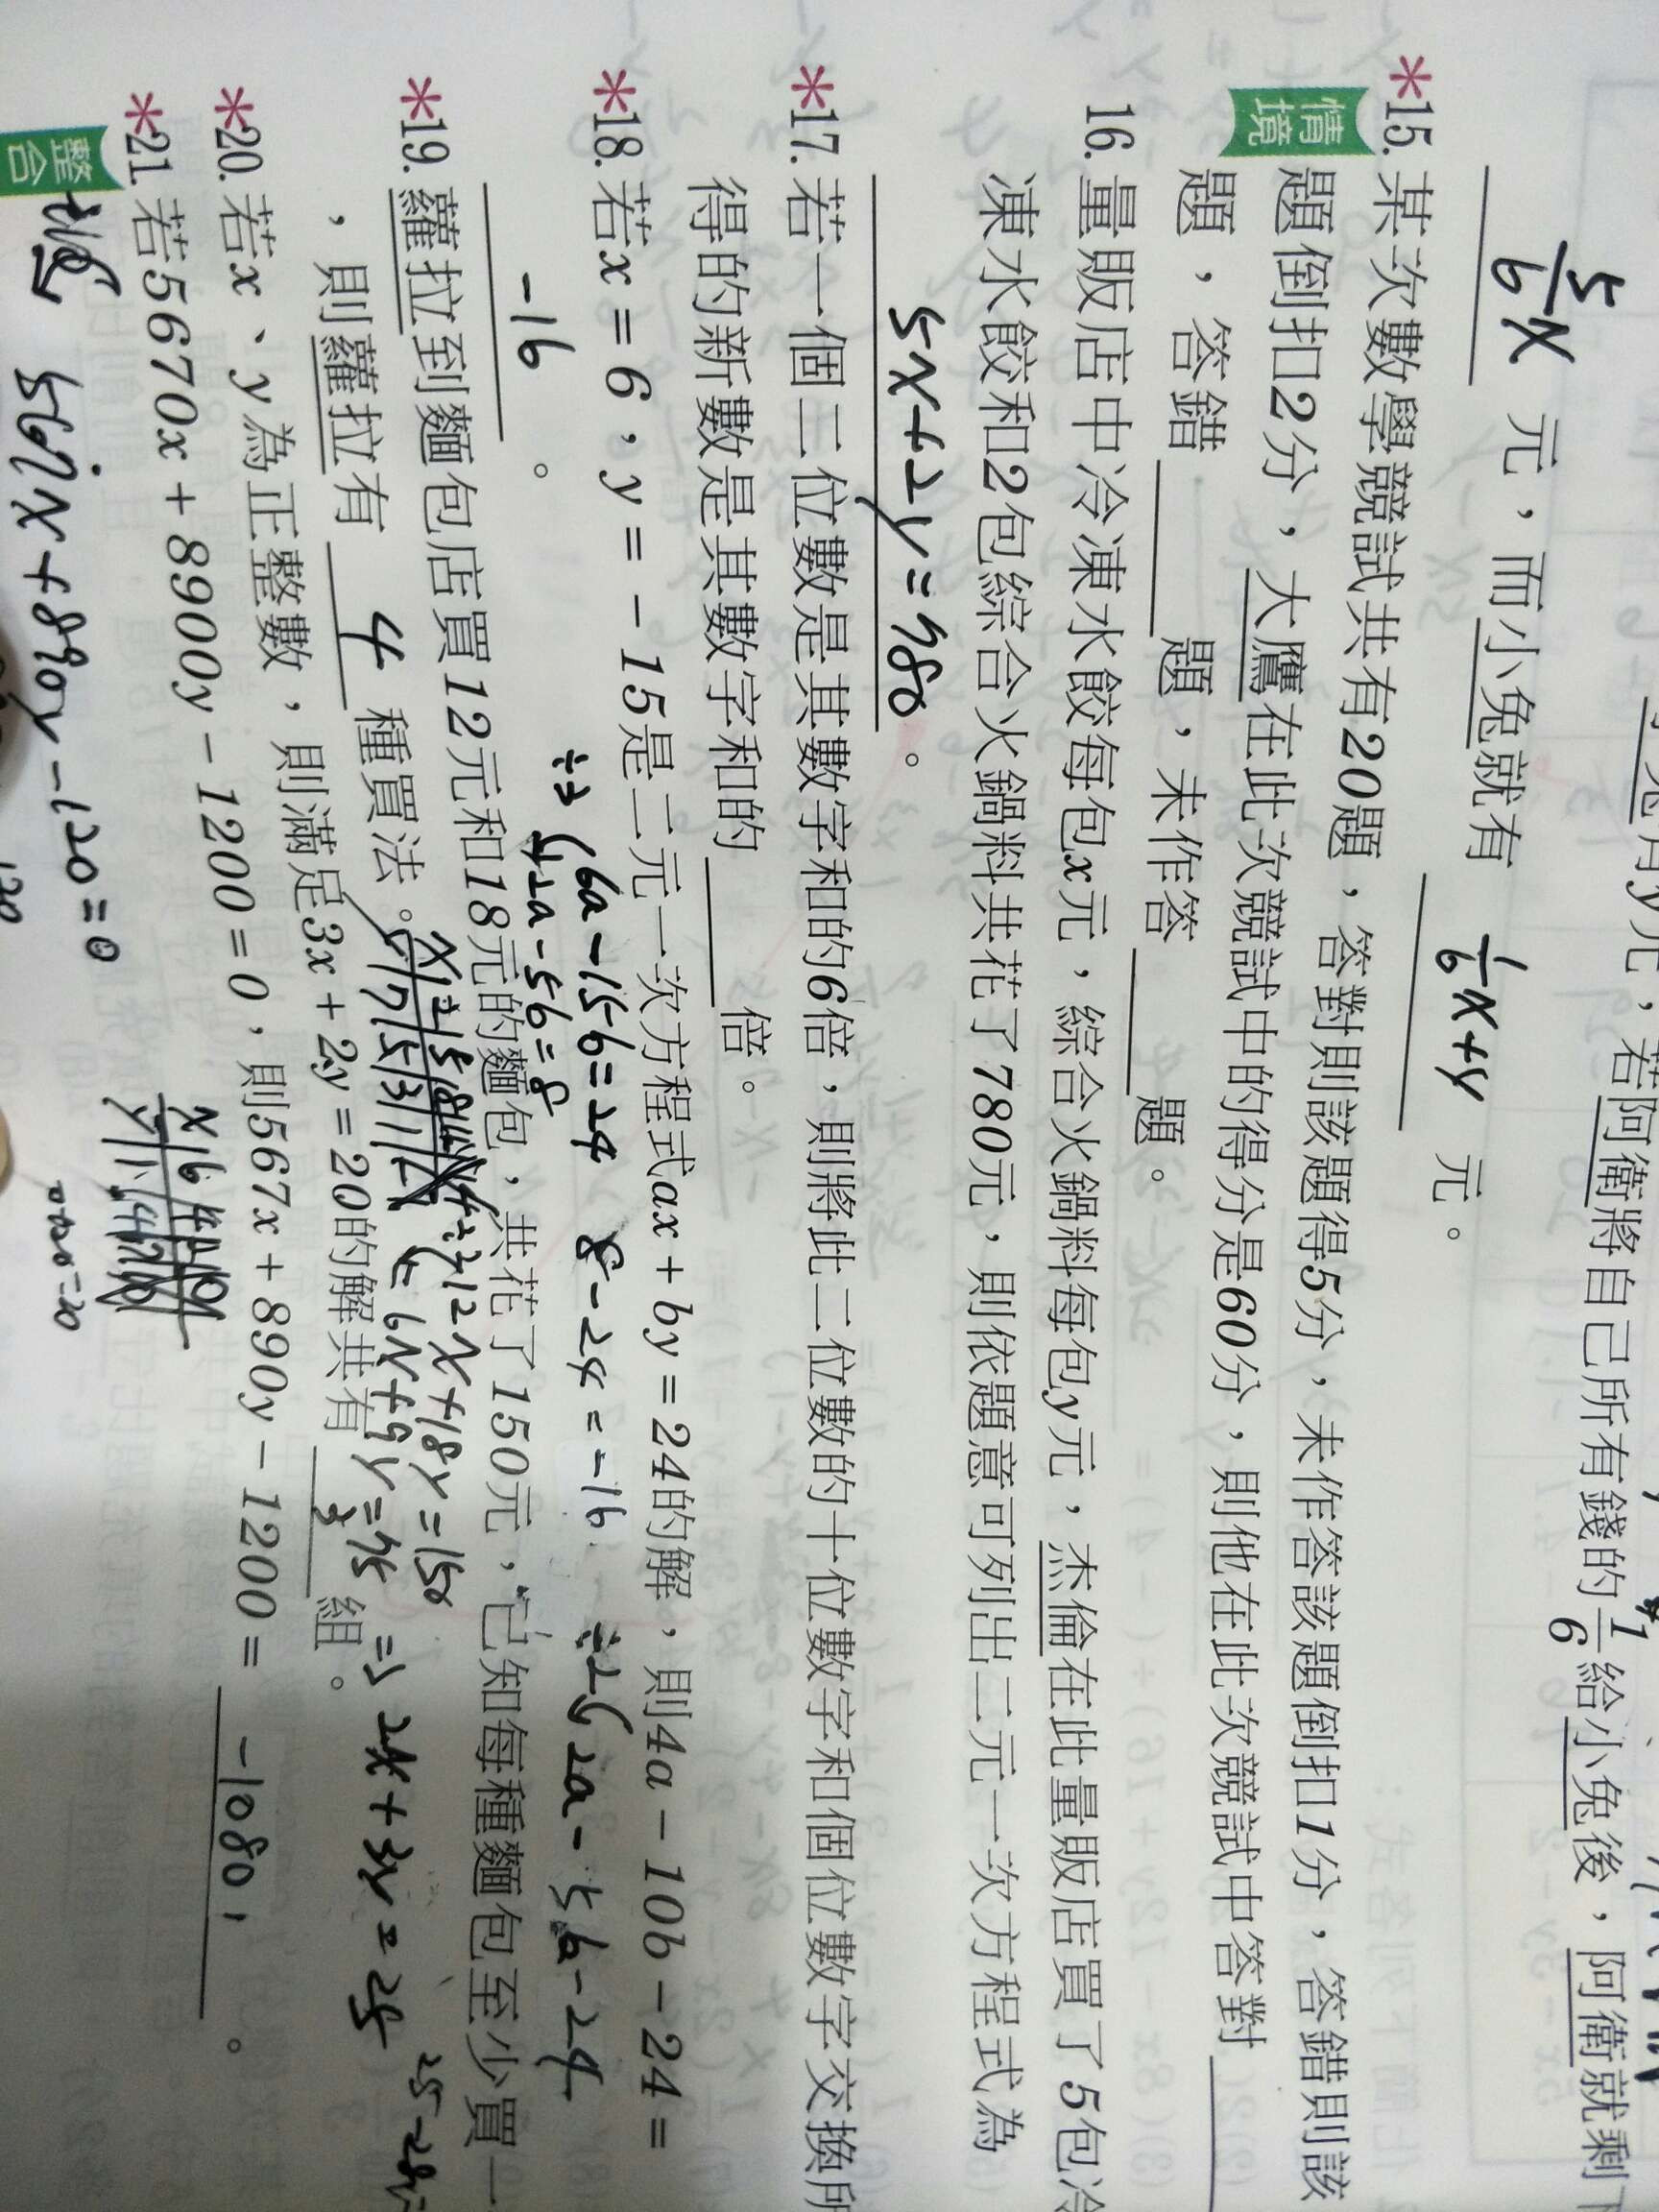 有y元，若阿衛將自己所有錢的1/6給小兔後，阿衛就剩
5/6x 元，而小兔就有 1/6x+y 元。
*15. 某次數學競試共有20題，答對則該題得5分，未作答該題倒扣1分，答錯則該
情境 題倒扣2分，大鷹在此次競試中的得分是60分，則他在此次競試中答對
題，答錯 題，未作答 題。
16. 量販店中冷凍水餃每包x元，綜合火鍋料每包y元，杰倫在此量販店買了5包冷
凍水餃和2包綜合火鍋料共花了780元，則依題意可列出二元一次方程式為
5x+2y=780 。
*17. 若一個二位數是其數字和的6倍，則將此二位數的十位數字和個位數字交換所
得的新數是其數字和的 倍。
*18. 若x = 6，y = -15是二元一次方程式ax + by = 24的解，則4a - 10b - 24 =
-16 。
÷3 ) 6a-15b=24 8-24=-16 ÷2 ) 2a-5b-24
2a-5b=8
*19. 蘿拉到麵包店買12元和18元的麵包，共花了150元，已知每種麵包至少買一
，則蘿拉有 4 種買法。
12x+18y=150
6x+9y=75 => 2x+3y=25
*20. 若x、y為正整數，則滿足3x + 2y = 20的解共有 3 組。
*21. 若5670x + 8900y - 1200 = 0，則567x + 890y - 1200 = -1080 。
整合
567x+890y-120=0